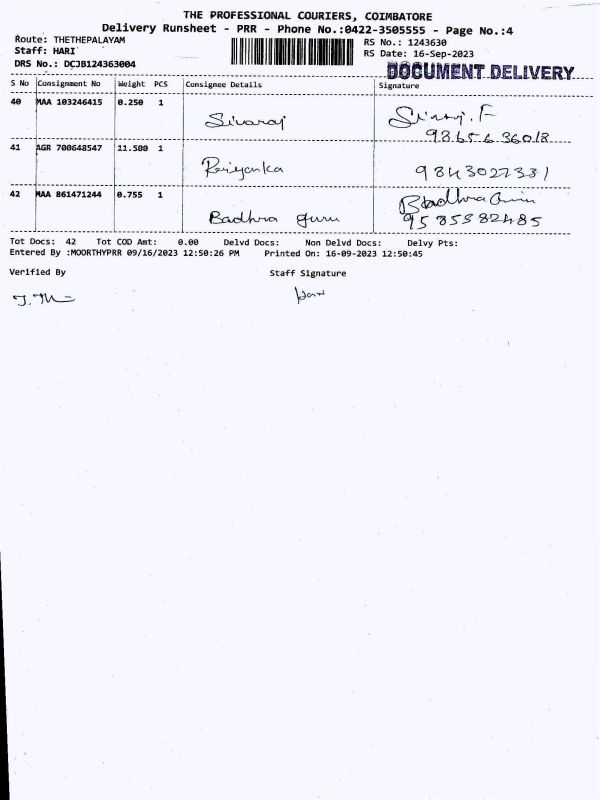 THE PROFESSIONAL COURIERS, COIMBATORE
Delivery Runsheet - PRR - Phone No.:0422-3505555 - Page No.:4
Route: THETHEPALAYAM
RS No.: 1243630
Staff: HARI
RS Date: 16-Sep-2023
DRS No.: DCJB124363004
DOCUMENT DELIVERY
S No Consignment No Weight PCS Consignee Details Signature
40 MAA 103246415 0.250 1 Sivaraj
41 AGR 700648547 11.500 1 Periyanka 9843027331
42 MAA 861471244 0.755 1 Badhra guru
9585582485
Tot Docs: 42 Tot COD Amt: 0.00 Delvd Docs: Non Delvd Docs: Delvy Pts:
Entered By :MOORTHYPRR 09/16/2023 12:50:26 PM Printed On: 16-09-2023 12:50:45
Verified By Staff Signature